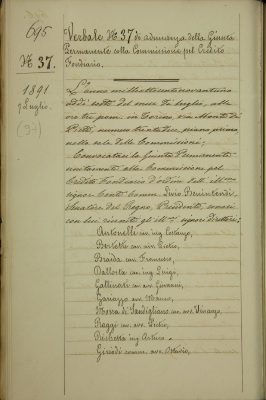 695
N.° 37.
1891
7 Luglio.
Verbale N.° 37 di adunanza della Giunta
Permanente colla Commissione pel Credito
Fondiario.
L'anno milleottocentonovantuno
addì sette del mese di luglio, alle
ore tre pom. in Torino, via Monte di
Pietà, numero trentadue, piano primo
nella sala delle Commissioni;
Convocatasi la Giunta Permanente
unitamente alla Commissione pel
Credito Fondiario d'ordine dell'ill.mo
signor Conte Comm. Livio Benintendi,
Senatore del Regno, Presidente, sonosi
con lui riuniti gli ill.mi signori Direttori:
Antonelli cav. ing. Costanzo,
Bertetti cav. avv. Pietro,
Braida cav. Francesco,
Dallosta cav. ing. Luigi,
Gallinati cav. avv. Giovanni,
Gariazzo avv. Marco,
Morra di Sandigliano cav. avv.
Raggi cav. avv. Pietro,
Rechetta ing. Arturo
Giriodi comm. avv. Ottavio,